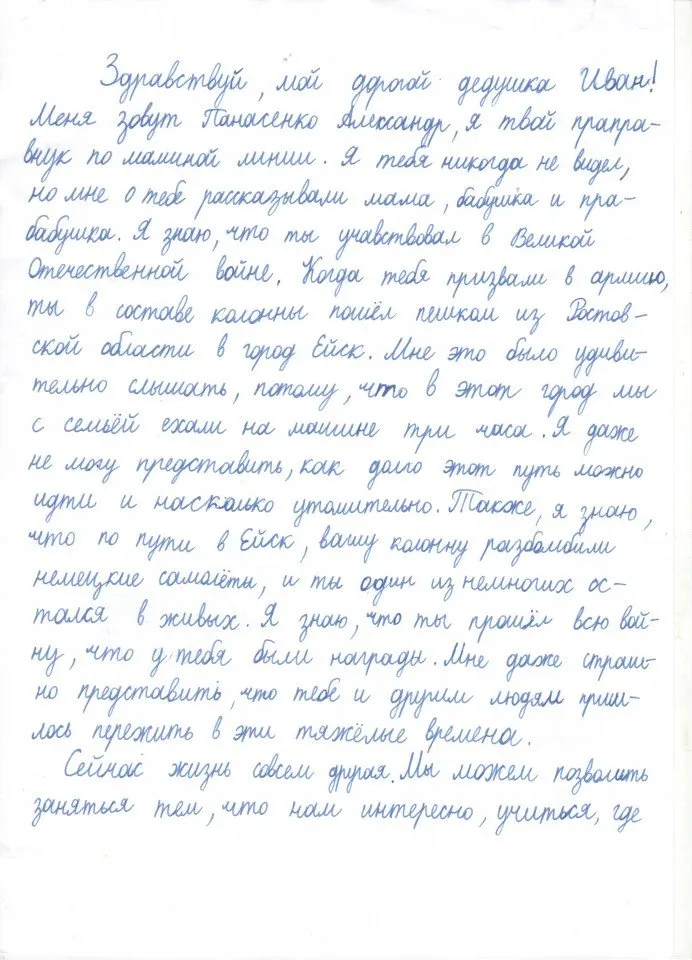 Здравствуй, мой дорогой дедушка Иван!
Меня зовут Панасенко Александр, я твой прапра-
внук по маминой линии. Я тебя никогда не видел,
но мне о тебе рассказывали мама, бабушка и пра-
бабушка. Я знаю, что ты учавствовал в Великой
Отечественной войне. Когда тебя призвали в армию,
ты в составе колонны пошёл пешком из Ростов-
ской области в город Ейск. Мне это было удиви-
тельно слышать, потому, что в этот город мы
с семьёй ехали на машине три часа. Я даже
не могу представить, как долго этот путь можно
идти и насколько утомительно. Также, я знаю,
что по пути в Ейск, вашу колонну разбомбили
немецкие самолёты, и ты один из немногих ос-
тался в живых. Я знаю, что ты прошёл всю вой-
ну, что у тебя были награды. Мне даже страш-
но представить, что тебе и другим людям приш-
лось пережить в эти тяжёлые времена.
Сейчас жизнь совсем другая. Мы можем позволить
заняться тем, что нам интересно, учиться, где